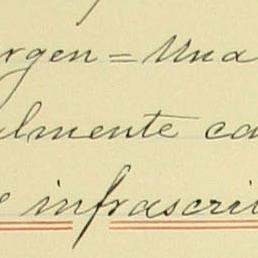 rgen = Una
almente ca
e infrascri